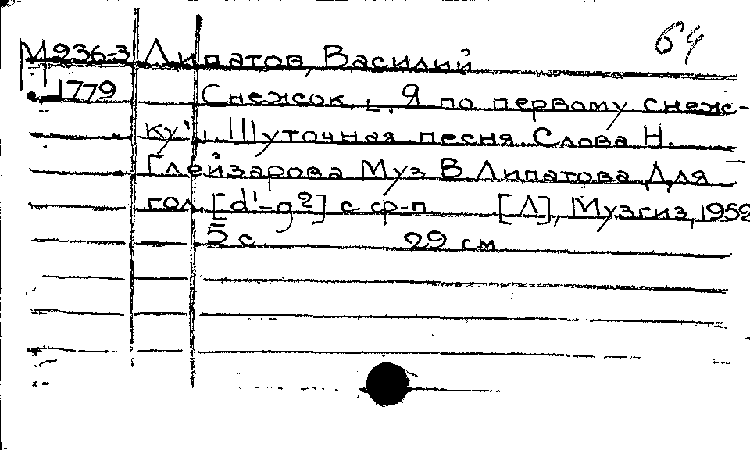 64
М 236-3 Липатов, Василий
1779 Снежок. "Я по первому снеж-
ку". Шуточная песня. Слова Н.
Глейзарова Муз В. Липатова Для
гол. [d'-g²] с ф-п [Л], Музгиз, 1952
5 с 29 см